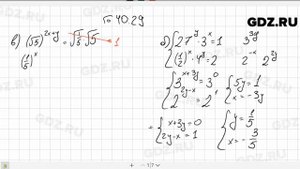 GDZ.RU
№ 40.29
в) (√5)^{2x+y} = √(1/5) √5 → 1
(1/5)^x
{ 27^y · 3^x = 1
(1/2)^x · 4^y = 2
3^{3y}
2^{-x} 2^{2y}
{ 3^{x+3y} = 3^0
2^{2y-x} = 2^1
{ 5y = 1
x = -3y
= { x+3y = 0
2y-x = 1
{ y = 1/5
x = -3/5
GDZ.RU